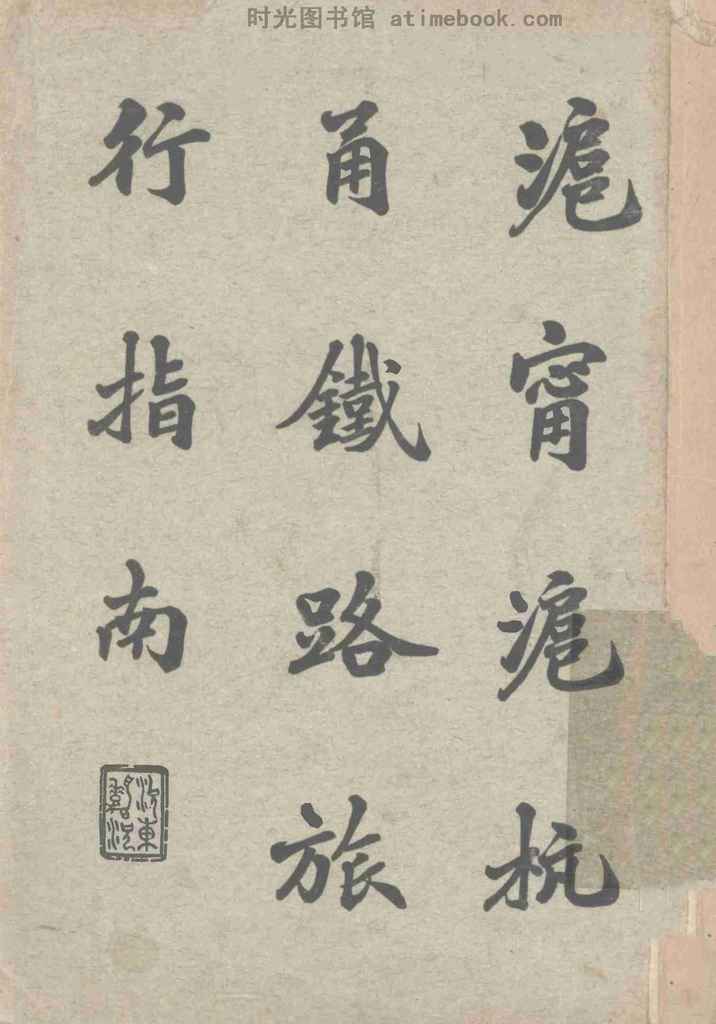 时光图书馆 atimebook.com
滬甯滬杭
甬鐵路旅
行指南